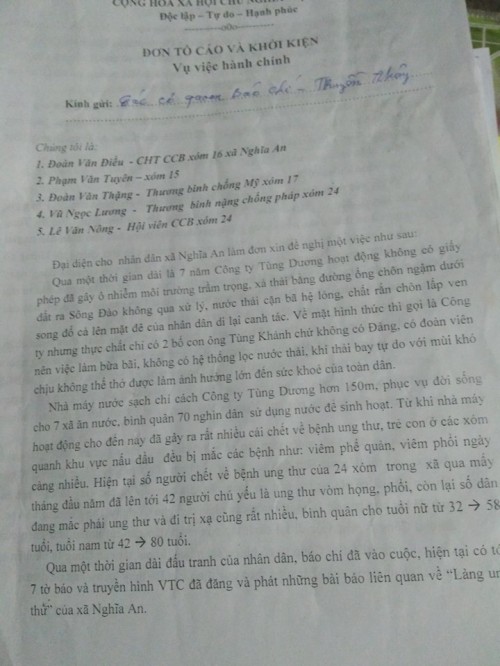 CỘNG HÒA XÃ HỘI CHỦ
Độc lập – Tự do – Hạnh phúc
ĐƠN TỐ CÁO VÀ KHỞI KIỆN
Vụ việc hành chính
Kính gửi: Các cơ quan báo chí - Truyền thông
Chúng tôi là:
1. Đoàn Văn Điều - CHT CCB xóm 16 xã Nghĩa An
2. Phạm Văn Tuyên – xóm 15
3. Đoàn Văn Thặng - Thương binh chống Mỹ xóm 17
4. Vũ Ngọc Lương - Thương binh nặng chống pháp xóm 24
5. Lê Văn Nông - Hội viên CCB xóm 24
Đại diện cho nhân dân xã Nghĩa An làm đơn xin đề nghị một việc như sau:
Qua một thời gian dài là 7 năm Công ty Tùng Dương hoạt động không có giấy
phép đã gây ô nhiễm môi trường trầm trọng, xả thải bằng đường ống chôn ngầm dưới
đất ra Sông Đào không qua xử lý, nước thải cặn bã hệ lòng, chất rắn chôn lấp ven
song đổ cả lên mặt đê của nhân dân đi lại canh tác. Về mặt hình thức thì gọi là Công
ty nhưng thực chất chỉ có 2 bố con ông Tùng Khánh chứ không có Đảng, có đoàn viên
nên việc làm bừa bãi, không có hệ thống lọc nước thải, khí thải bay tự do với mùi khó
chịu không thể thở được làm ảnh hưởng lớn đến sức khoẻ của toàn dân.
Nhà máy nước sạch chỉ cách Công ty Tùng Dương hơn 150m, phục vụ đời sống
cho 7 xã ăn nước, bình quân 70 nghìn dân sử dụng nước để sinh hoạt. Từ khi nhà máy
hoạt động cho đến nay đã gây ra rất nhiều cái chết về bệnh ung thư, trẻ con ở các xóm
quanh khu vực nấu dầu đều bị mắc các bệnh như: viêm phế quản, viêm phổi ngày
càng nhiều. Hiện tại số người chết về bệnh ung thư của 24 xóm trong xã qua mấy
tháng đầu năm đã lên tới 42 người chủ yếu là ung thư vòm họng, phổi, còn lại số dân
đang mắc phải ung thư và đi trị xạ cũng rất nhiều, bình quân cho tuổi nữ từ 32 → 58
tuổi, tuổi nam từ 42 → 80 tuổi.
Qua một thời gian dài đấu tranh của nhân dân, báo chí đã vào cuộc, hiện tại có tớ
7 tờ báo và truyền hình VTC đã đăng và phát những bài báo liên quan về “Làng un
thư” của xã Nghĩa An.